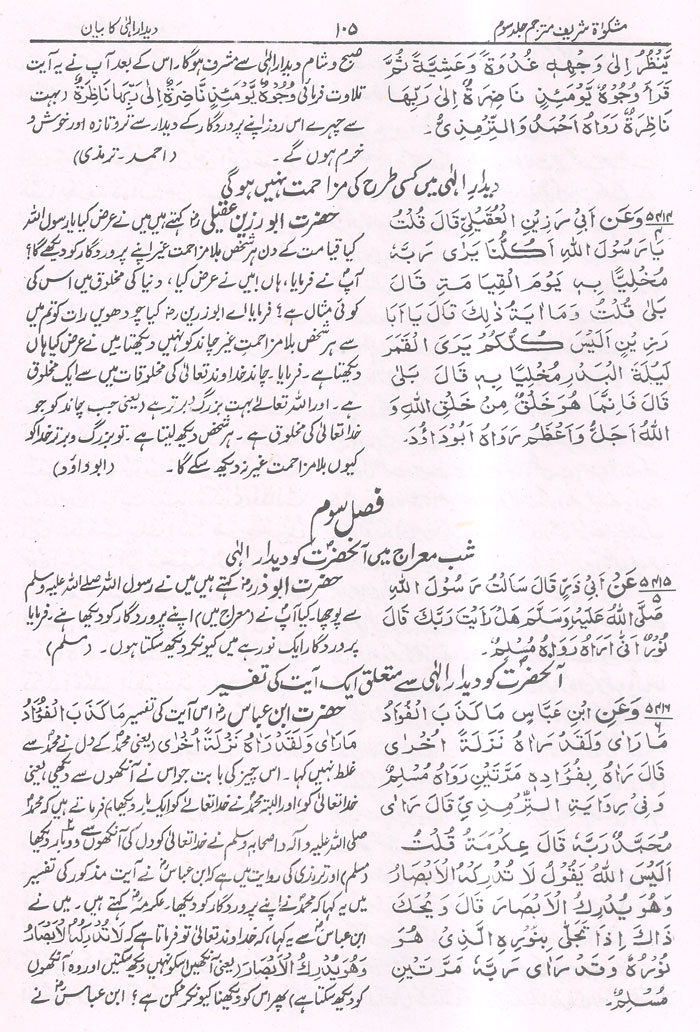 مشکوٰۃ شریف مترجم جلد سوم
۱۰۵
دیدار الہٰی کا بیان
يَنْظُرُ اِلٰى وَجْهِهٖ غُدْوَةً وَّعَشِيَّةً ثُمَّ
قَرَأَ وُجُوْهٌ يَّوْمَئِذٍ نَاضِرَةٌ اِلٰى رَبِّهَا
نَاظِرَةٌ رَوَاهُ اَحْمَدُ وَالتِّرْمِذِيُّ۔
صبح و شام دیدار الہٰی سے مشرف ہوگا۔ اس کے بعد آپ نے یہ آیت
تلاوت فرمائی وُجُوْهٌ يَّوْمَئِذٍ نَّاضِرَةٌ اِلٰى رَبِّهَا نَاظِرَةٌ (بہت
سے چہرے اس روز اپنے پروردگار کے دیدار سے تروتازہ اور خوش و
خرم ہوں گے۔ (احمد۔ ترمذی)
دیدار الہٰی میں کسی طرح کی مزاحمت نہیں ہوگی
۵۴۱۴ وَعَنْ اَبِيْ رَزِيْنٍ الْعُقَيْلِيِّ قَالَ قُلْتُ
يَا رَسُوْلَ اللهِ اَكُلُّنَا يَرٰى رَبَّهٗ
مُخْلِيًّا بِهٖ يَوْمَ الْقِيَامَةِ قَالَ
بَلٰى قُلْتُ وَمَا اٰيَةُ ذٰلِكَ قَالَ يَا اَبَا
رَزِيْنٍ اَلَيْسَ كُلُّكُمْ يَرَى الْقَمَرَ
لَيْلَةَ الْبَدْرِ مُخْلِيًّا بِهٖ قَالَ بَلٰى
قَالَ فَاِنَّمَا هُوَ خَلْقٌ مِّنْ خَلْقِ اللهِ وَ
اللهُ اَجَلُّ وَاَعْظَمُ رَوَاهُ اَبُوْدَاوٗدَ۔
حضرت ابورزین عقیلیؓ کہتے ہیں میں نے عرض کیا یا رسول اللہ
کیا قیامت کے دن ہر شخص بلا مزاحمت غیر اپنے پروردگار کو دیکھے گا؟
آپؐ نے فرمایا، ہاں! میں نے عرض کیا، دنیا کی مخلوق میں اس کی
کوئی مثال ہے؟ فرمایا اے ابورزینؓ کیا چودھویں رات کو تم میں
سے ہر شخص بلا مزاحمت غیر چاند کو نہیں دیکھتا میں نے عرض کیا ہاں
دیکھتا ہے۔ فرمایا۔ چاند خداوند تعالیٰ کی مخلوقات میں سے ایک مخلوق
ہے۔ اور اللہ تعالےٰ بہت بزرگ و برتر ہے (یعنی جب چاند کو جو
خدا تعالیٰ کی مخلوق ہے۔ ہر شخص دیکھ لیتا ہے۔ تو بزرگ و برتر خدا کو
کیوں بلا مزاحمت غیر نہ دیکھ سکے گا۔ (ابوداؤد)
فصل سوم
شب معراج میں آنحضرتؐ کو دیدار الٰہی
۵۴۱۵ عَنْ اَبِيْ ذَرٍّ قَالَ سَاَلْتُ رَسُوْلَ اللهِ
صَلَّى اللهُ عَلَيْهِ وَسَلَّمَ هَلْ رَاَيْتَ رَبَّكَ قَالَ
نُوْرٌ اَنّٰى اَرَاهُ رَوَاهُ مُسْلِمٌ۔
حضرت ابوذرؓ کہتے ہیں میں نے رسول اللہ صلے اللہ علیہ وسلم
سے پوچھا۔ کیا آپؐ نے (معراج میں) اپنے پروردگار کو دیکھا ہے۔ فرمایا
پروردگار ایک نور ہے میں کیونکر دیکھ سکتا ہوں۔ (مسلم)
آنحضرتؐ کو دیدار الہٰی سے متعلق ایک آیت کی تفسیر
۵۴۱۶ وَعَنِ ابْنِ عَبَّاسٍ مَا كَذَبَ الْفُؤَادُ
مَا رَاٰى وَلَقَدْ رَاٰهُ نَزْلَةً اُخْرٰى
قَالَ رَاٰهُ بِفُؤَادِهٖ مَرَّتَيْنِ رَوَاهُ مُسْلِمٌ
وَفِيْ رِوَايَةِ التِّرْمِذِيِّ قَالَ رَاٰى
مُحَمَّدٌ رَبَّهٗ قَالَ عِكْرِمَةُ قُلْتُ
اَلَيْسَ اللهُ يَقُوْلُ لَا تُدْرِكُهُ الْاَبْصَارُ
وَهُوَ يُدْرِكُ الْاَبْصَارَ قَالَ وَيْحَكَ
ذَاكَ اِذَا تَجَلّٰى بِنُوْرِهِ الَّذِيْ هُوَ
نُوْرُهٗ وَقَدْ رَاٰى رَبَّهٗ مَرَّتَيْنِ
مُسْلِمٌ۔
حضرت ابن عباسؓ اس آیت کی تفسیر مَا كَذَبَ الْفُؤَادُ
مَا رَاٰى وَلَقَدْ رَاٰهُ نَزْلَةً اُخْرٰى (یعنی محمدؐ کے دل نے محمدؐ سے
غلط نہیں کہا۔ اس چیز کی بابت جو اس نے آنکھوں سے دیکھی، یعنی
خدا تعالیٰ کو اور البتہ محمدؐ نے خدا تعالےٰ کو ایک بار دیکھا) فرماتے ہیں کہ محمدؐ
صلی اللہ علیہ و آلہ و اصحابہ وسلم نے خدا تعالیٰ کو دل کی آنکھوں سے دو بار دیکھا
(مسلم) اور ترمذی کی روایت میں ہے کہ ابن عباسؓ نے آیت مذکور کی تفسیر
میں یہ کہا کہ محمدؐ نے اپنے پروردگار کو دیکھا۔ عکرمہؓ کہتے ہیں۔ میں نے
ابن عباسؓ سے یہ کہا کہ خداوند تعالیٰ تو فرماتا ہے کہ لَا تُدْرِكُهُ الْاَبْصَارُ
وَهُوَ يُدْرِكُ الْاَبْصَارَ (یعنی آنکھیں اسکو نہیں دیکھ سکتیں اور وہ آنکھوں
کو دیکھ سکتا ہے) پھر اس کو دیکھنا کیونکر ممکن ہے؟ ابن عباسؓ نے